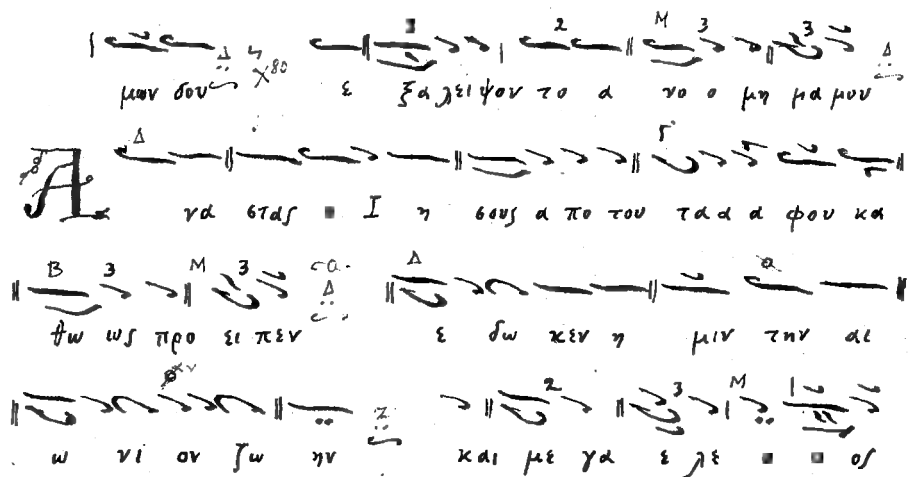 μων δου ε ξα λει ψον το α νο ο μη μα μου
Α να στας Ι η σους α πο του τα α α φου κα
θω ως προ ει πεν ε δω κεν η μιν την αι
ω νι ον ζω ην και με γα ε λε ος